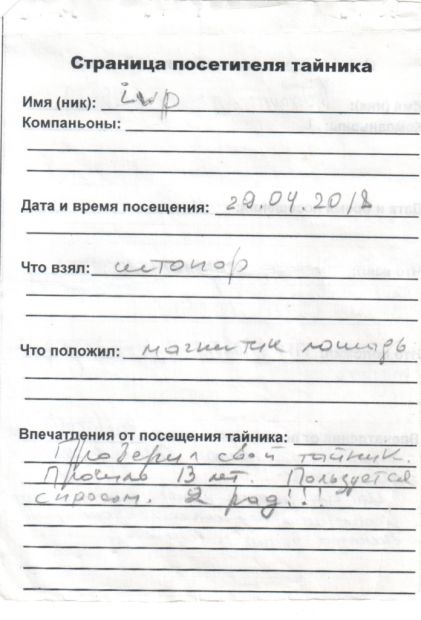 Страница посетителя тайника
Имя (ник): ivp
Компаньоны:
Дата и время посещения: 29.04.2018
Что взял: штопор
Что положил: магнитик лошадь
Впечатления от посещения тайника:
Проверил свой тайник.
Прошло 13 лет. Пользуется
спросом. Я рад!!!